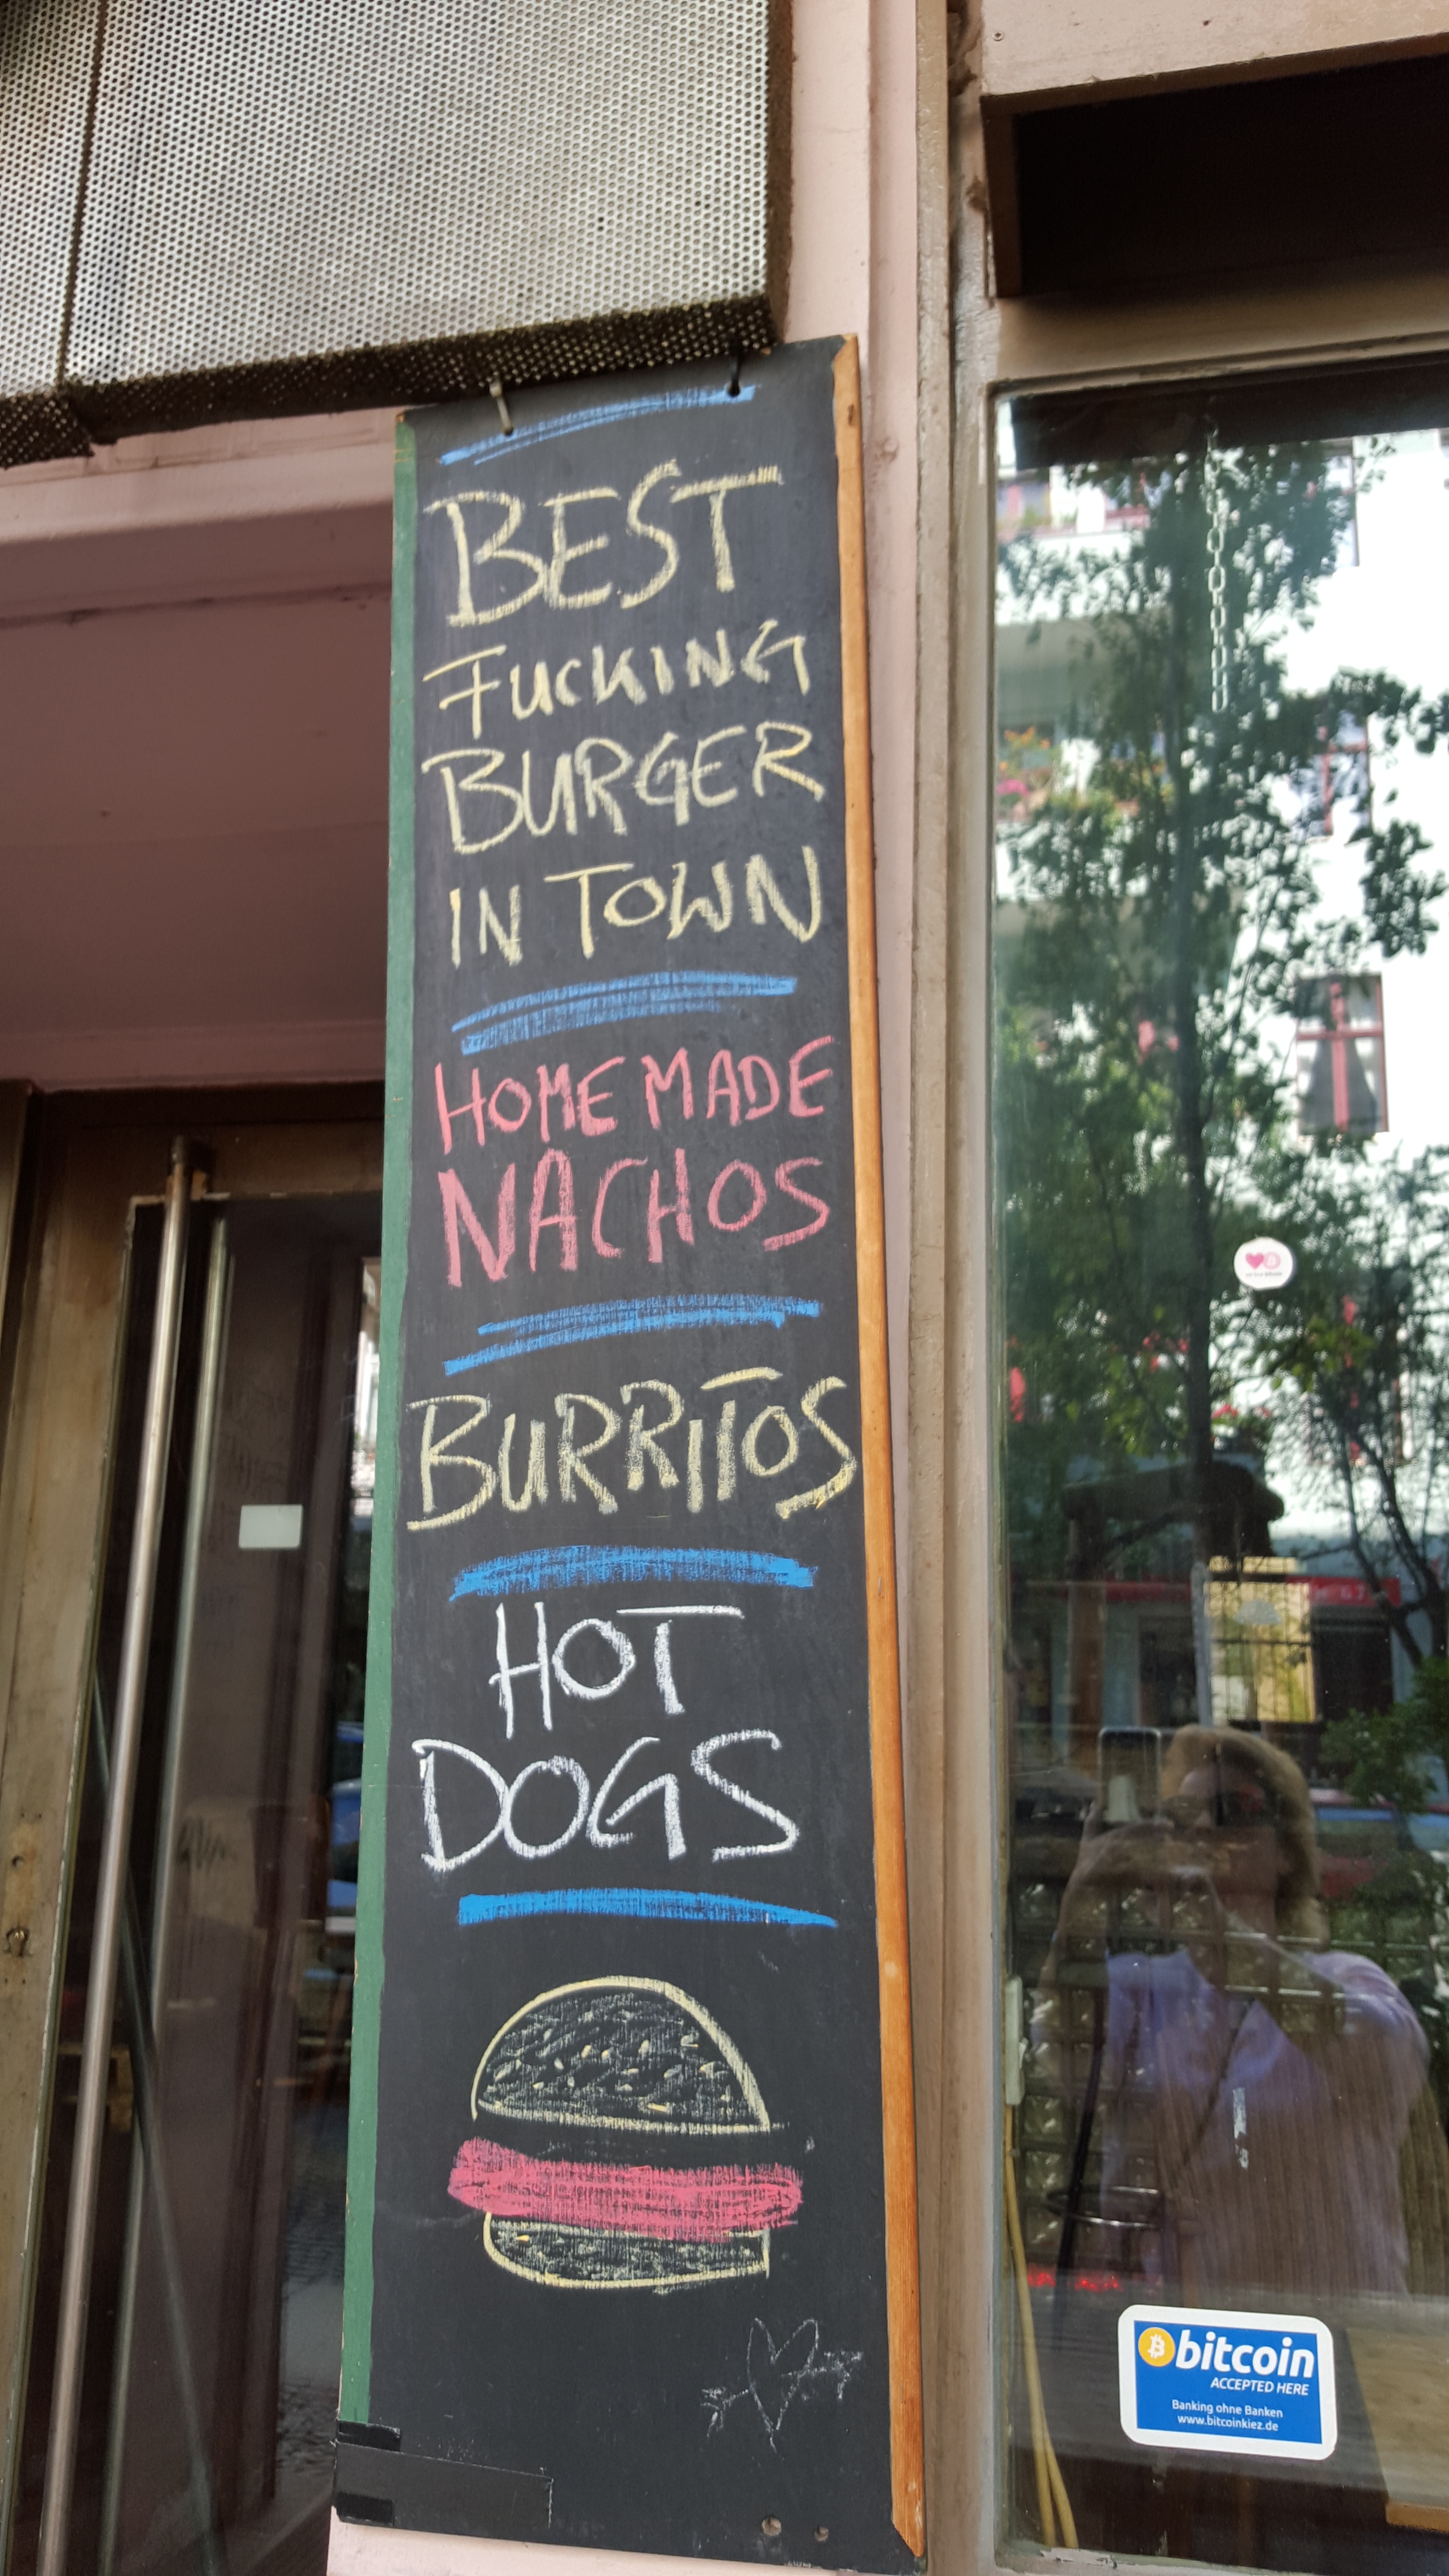 BEST
FUCKING
BURGER
IN TOWN
HOMEMADE
NACHOS
BURRITOS
HOT
DOGS
bitcoin
ACCEPTED HERE
Banking ohne Banken
www.bitcoinkiez.de